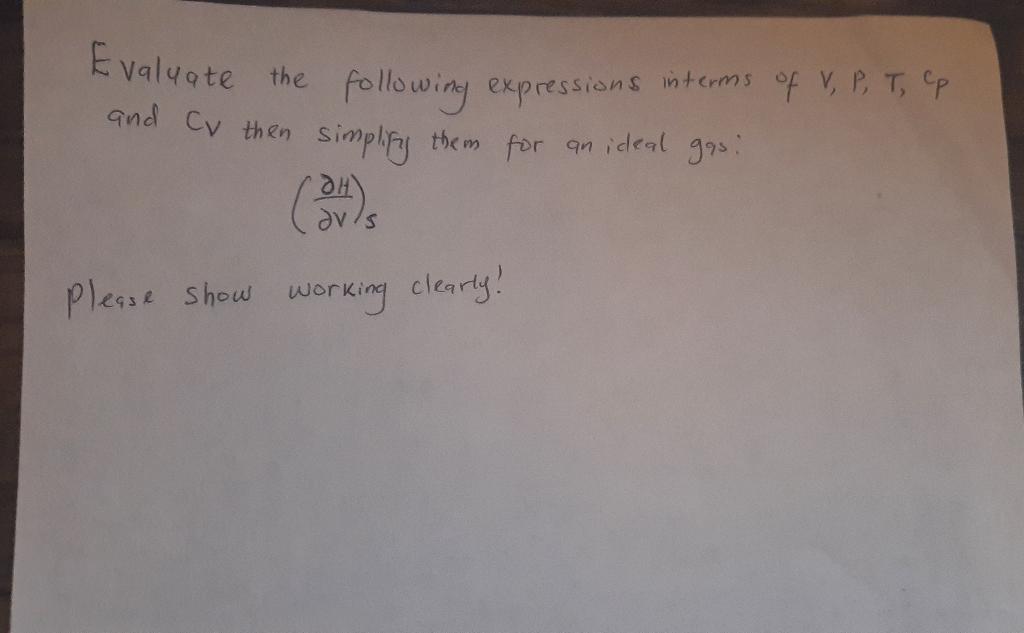 Evaluate the following expressions interms of V, P, T, Cp
and Cv then simplify them for an ideal gas:
(∂H/∂V)s
please show working clearly!